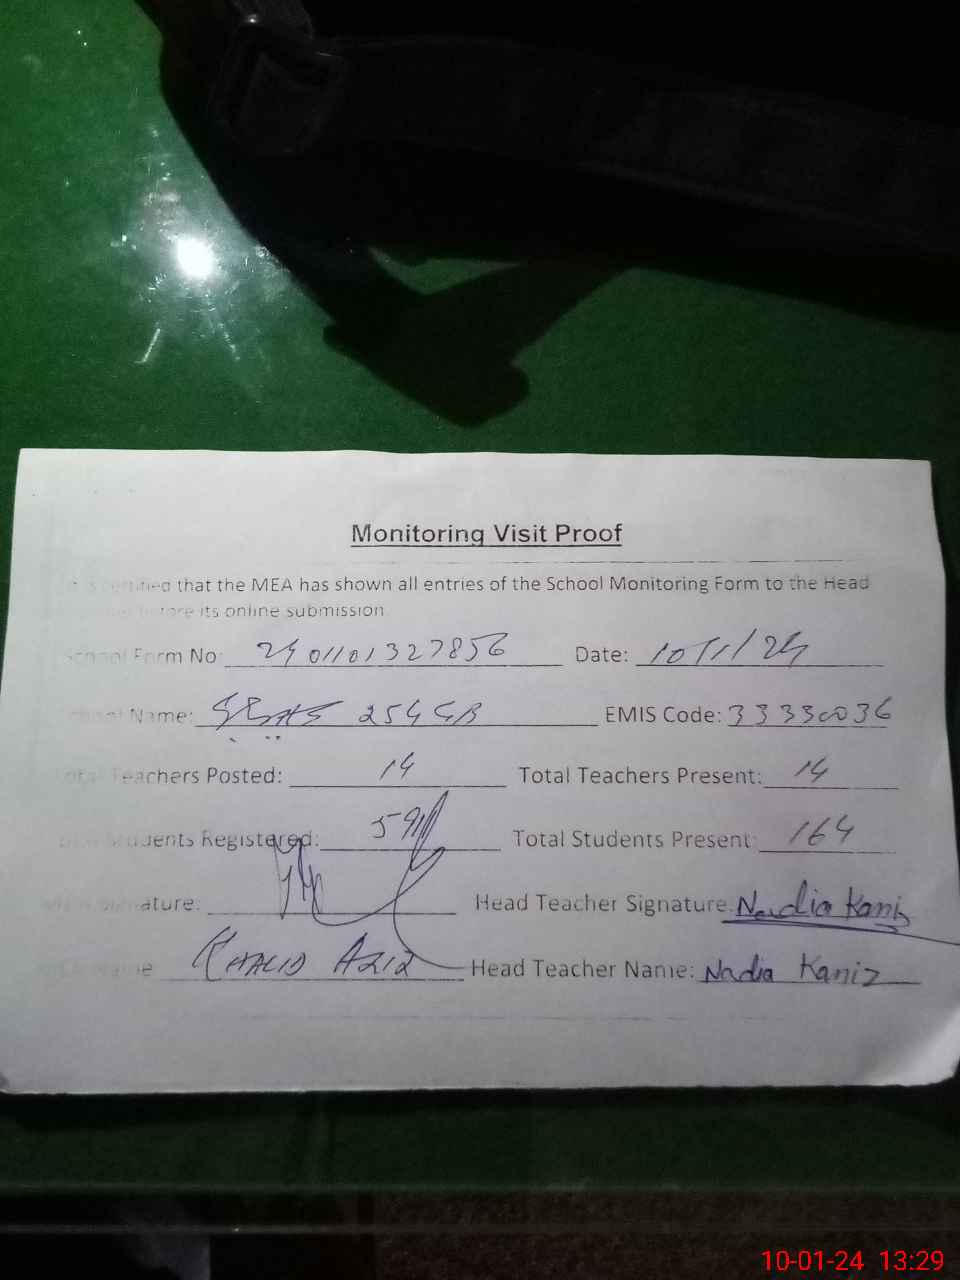 Monitoring Visit Proof
certified that the MEA has shown all entries of the School Monitoring Form to the Head
before its online submission
School Form No: 2401101327856 Date: 10/1/24
School Name: 254 GB EMIS Code: 33330036
Total Teachers Posted: 14 Total Teachers Present: 14
Total Students Registered: 591 Total Students Present: 164
MEA Signature: Head Teacher Signature: Nadia Kaniz
Name KHALID AZIZ Head Teacher Name: Nadia Kaniz
10-01-24 13:29